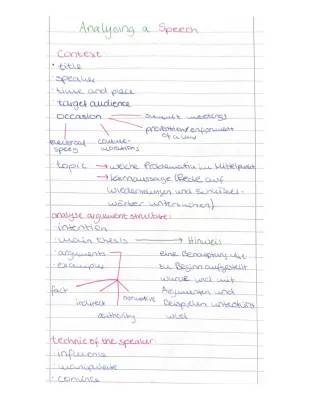 Analysing a Speech
Context:
· title
· speaker
· time and place
· target audience
· occasion
summit meetings
prevention/enforcement of a law
electoral speech
topic → welche Problematik im Mittelpunkt
→ Kernaussage (Rede auf
Wiederholungen und Schlüssel-
wörter untersuchen)
analyse argument structure:
· intention
· main thesis → Hinweis
· arguments
· examples
eine Behauptung die
zu Beginn aufgestellt
wurde und mit
Argumenten und
Beispielen unterstützt
wird
fact
indirect
authority
technic of the speaker:
· influence
· manipulate
· convince